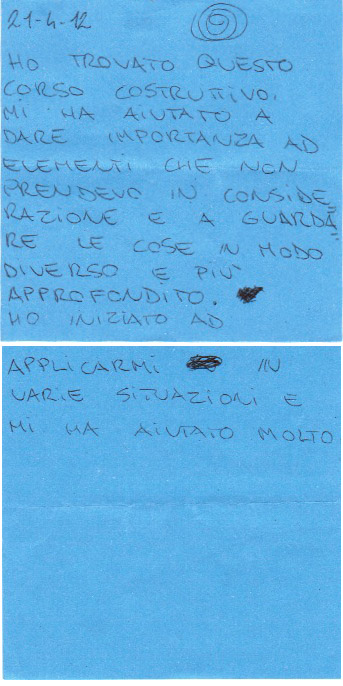 21-4-12
HO TROVATO QUESTO
CORSO COSTRUTTIVO.
MI HA AIUTATO A
DARE IMPORTANZA AD
ELEMENTI CHE NON
PRENDEVO IN CONSIDE
RAZIONE E A GUARDA
RE LE COSE IN MODO
DIVERSO E PIU'
APPROFONDITO.
HO INIZIATO AD
APPLICARMI IN
VARIE SITUAZIONI E
MI HA AIUTATO MOLTO